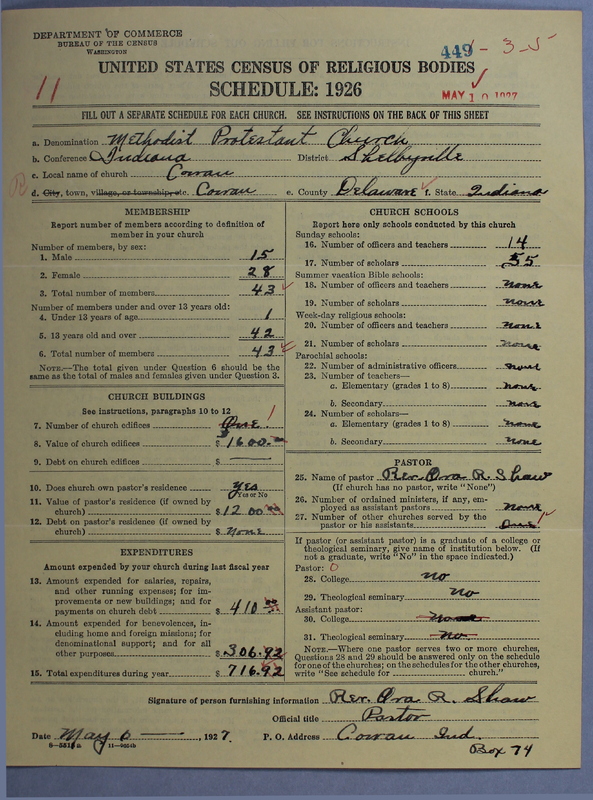 DEPARTMENT OF COMMERCE
BUREAU OF THE CENSUS
WASHINGTON
449 - 3 - 5
UNITED STATES CENSUS OF RELIGIOUS BODIES
SCHEDULE: 1926
11
MAY 10 1927
FILL OUT A SEPARATE SCHEDULE FOR EACH CHURCH. SEE INSTRUCTIONS ON THE BACK OF THIS SHEET
a. Denomination Methodist Protestant Church
b. Conference Indiana District Shelbyville
c. Local name of church Cowan
d. City, town, village, or township, etc. Cowan e. County Delaware f. State Indiana
MEMBERSHIP
Report number of members according to definition of
member in your church
Number of members, by sex:
1. Male 15
2. Female 28
3. Total number of members 43
Number of members under and over 13 years old:
4. Under 13 years of age 1
5. 13 years old and over 42
6. Total number of members 43
NOTE.—The total given under Question 6 should be the
same as the total of males and females given under Question 3.
CHURCH BUILDINGS
See instructions, paragraphs 10 to 12
7. Number of church edifices One 1
8. Value of church edifices $ 1600.
9. Debt on church edifices $ —
10. Does church own pastor's residence? Yes
Yes or No
11. Value of pastor's residence (if owned by
church) $ 1200
12. Debt on pastor's residence (if owned by
church) $ None
EXPENDITURES
Amount expended by your church during last fiscal year
13. Amount expended for salaries, repairs,
and other running expenses; for im-
provements or new buildings; and for
payments on church debt $ 410
14. Amount expended for benevolences, in-
cluding home and foreign missions; for
denominational support; and for all
other purposes $ 306.92
15. Total expenditures during year $ 716.92
CHURCH SCHOOLS
Report here only schools conducted by this church
Sunday schools:
16. Number of officers and teachers 14
17. Number of scholars 55
Summer vacation Bible schools:
18. Number of officers and teachers none
19. Number of scholars none
Week-day religious schools:
20. Number of officers and teachers none
21. Number of scholars none
Parochial schools:
22. Number of administrative officers none
23. Number of teachers—
a. Elementary (grades 1 to 8) none
b. Secondary none
24. Number of scholars—
a. Elementary (grades 1 to 8) none
b. Secondary none
PASTOR
25. Name of pastor Rev. Ora R. Shaw
(If church has no pastor, write "None")
26. Number of ordained ministers, if any, em-
ployed as assistant pastors none
27. Number of other churches served by the
pastor or his assistants One 1
If pastor (or assistant pastor) is a graduate of a college or
theological seminary, give name of institution below. (If
not a graduate, write "No" in the space indicated.)
Pastor: 0
28. College no
29. Theological seminary no
Assistant pastor:
30. College None
31. Theological seminary no
NOTE.—Where one pastor serves two or more churches,
Questions 28 and 29 should be answered only on the schedule
for one of the churches; on the schedules for the other churches,
write "See schedule for church."
Signature of person furnishing information Rev. Ora R. Shaw
Official title Pastor
Date May 6 —, 1927. P. O. Address Cowan Ind.
Box 74